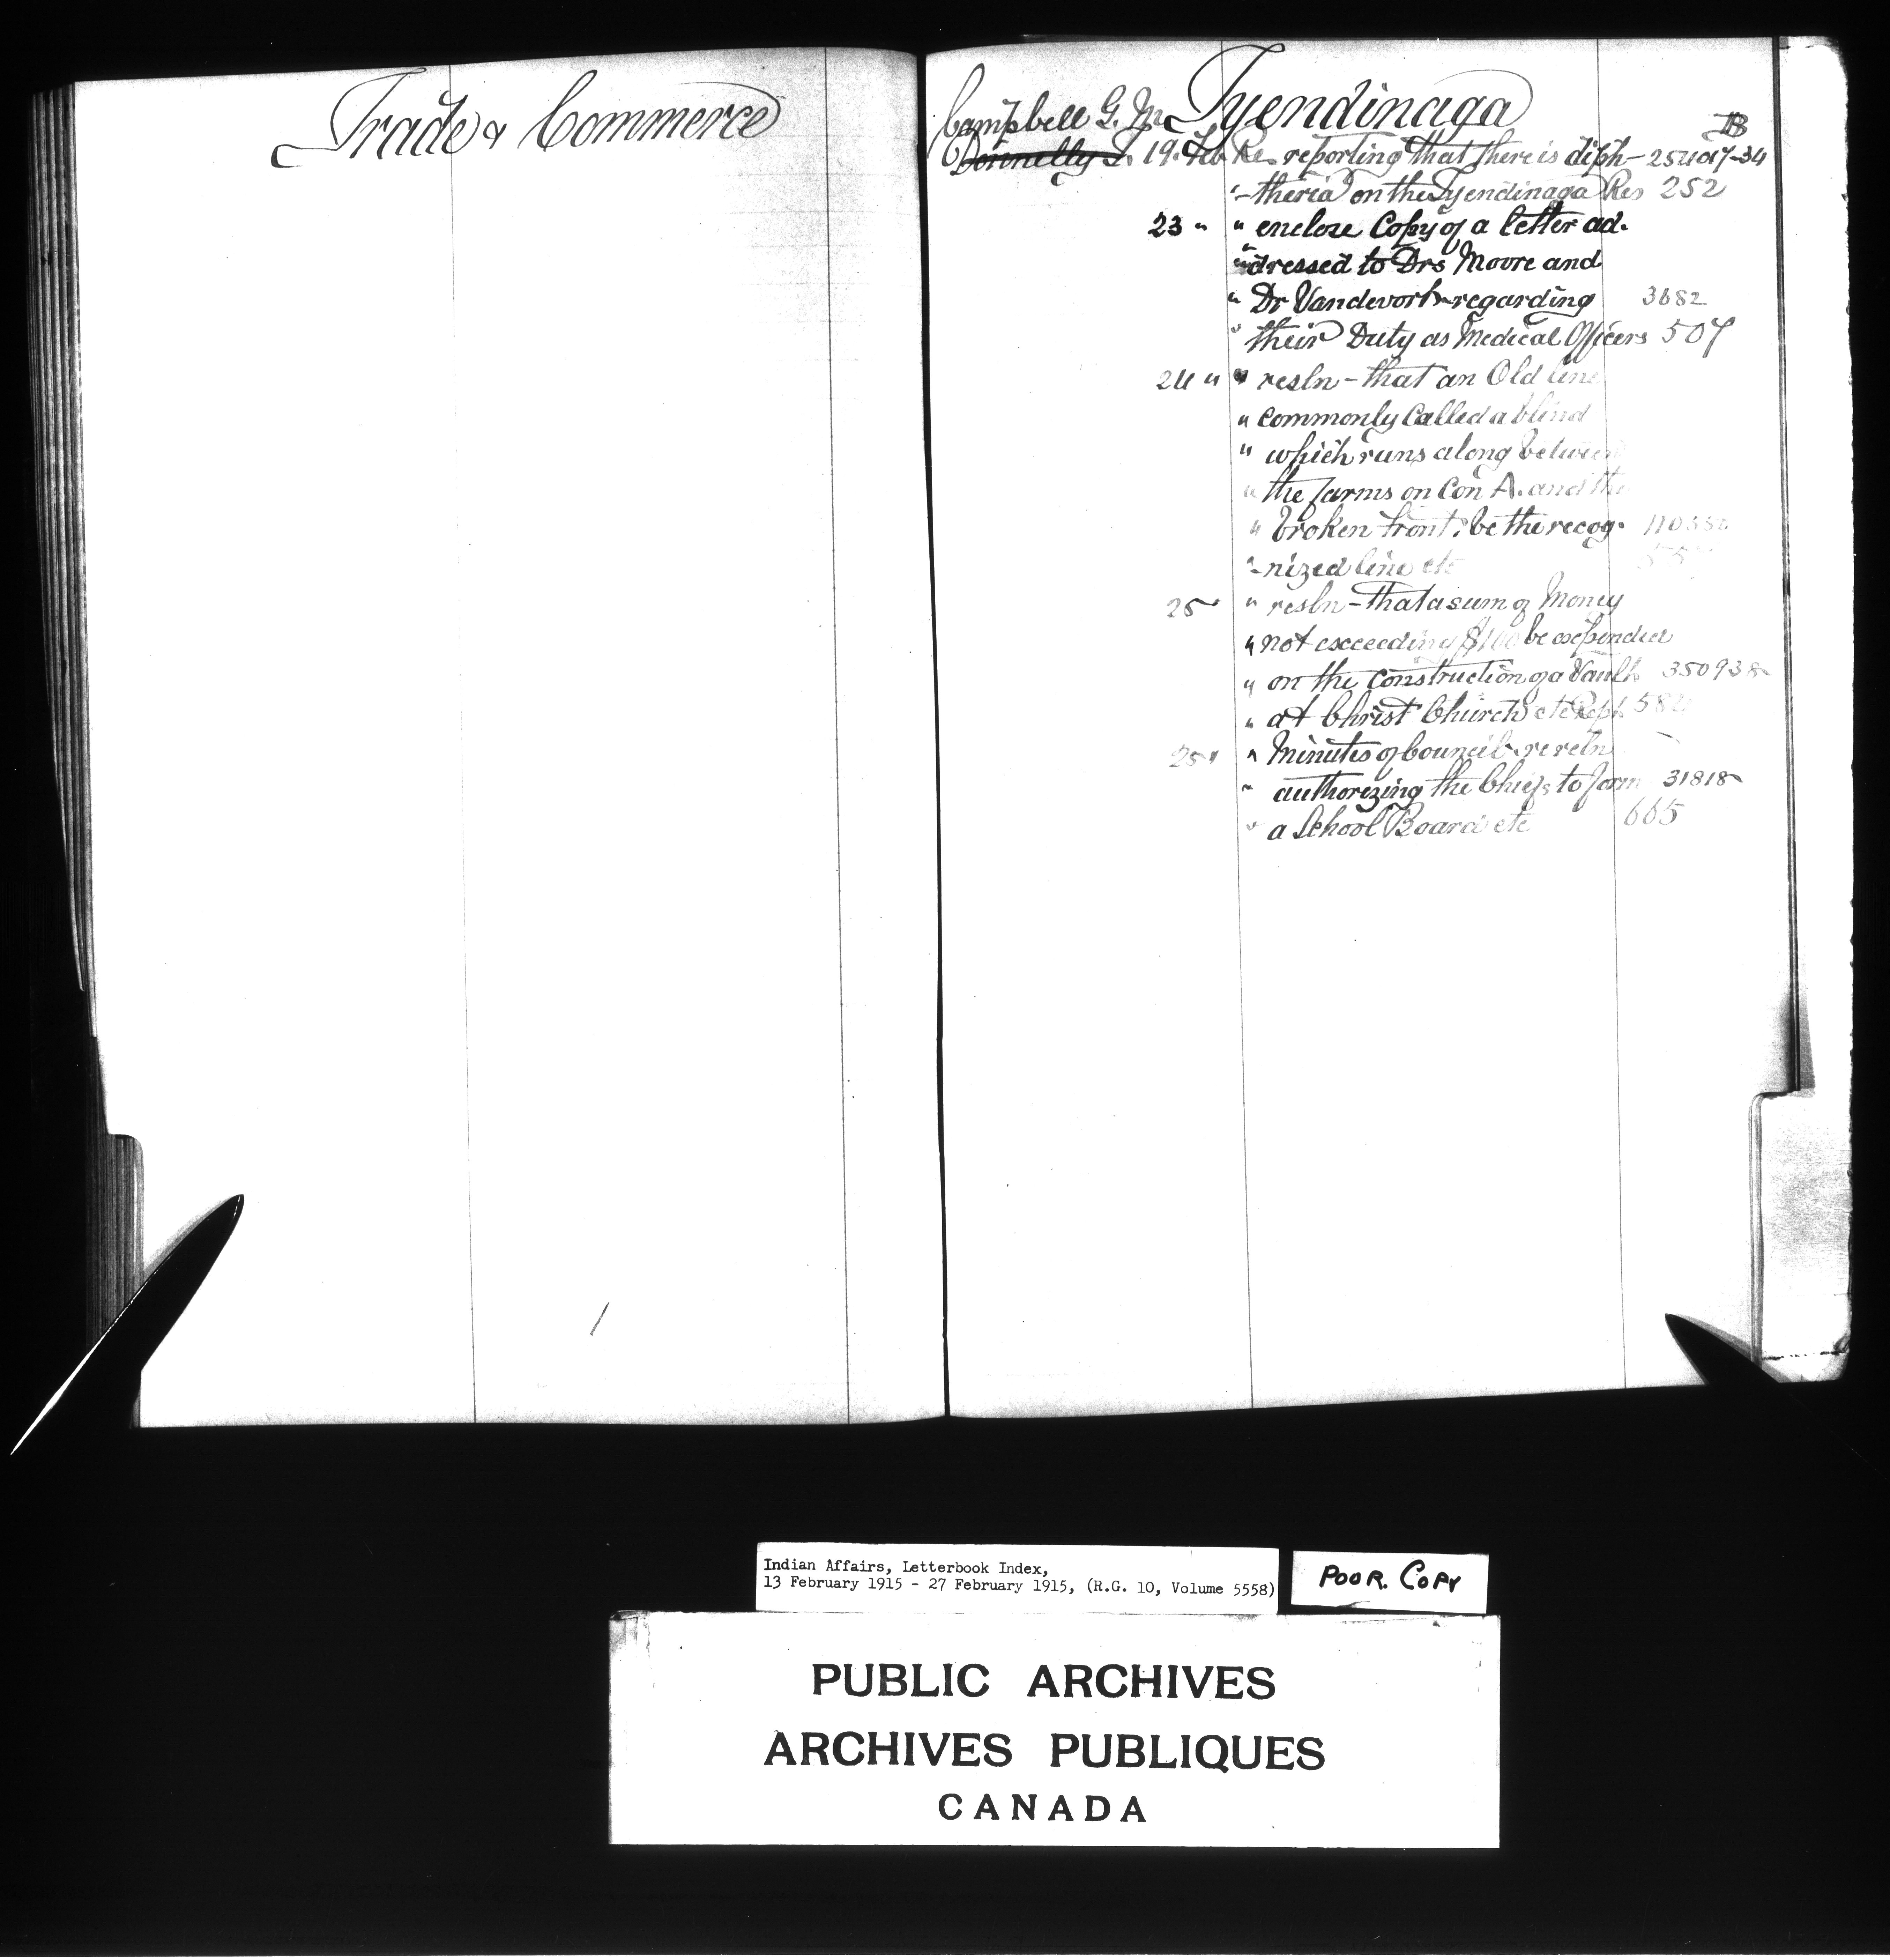 Trade & Commerce
Tyendinaga
Campbell G. M.
B
Donnelly T. 19. Feb Re reporting that there is diph- 254017-34
"-theria on the Tyendinaga Res 252
23 " " enclose Copy of a letter ad-
" dressed to Drs Moore and
" Dr Vandevort regarding 3682
" their Duty as Medical Officers 507
24 " " resln - that an Old line
" commonly Called a blind
" which runs along between
" the farms on Con A. and the
" broken front, be the recog-
"-nized line etc
25 " " resln - that a sum of Money
" not exceeding $100 be expended
" on the Construction of a Vault 350938
" at Christ Church etc
25 " " Minutes of Council re
" authorizing the Chiefs to form 31818
" a School Board etc 665
Indian Affairs, Letterbook Index,
13 February 1915 - 27 February 1915, (R.G. 10, Volume 5558)
POOR. COPY
PUBLIC ARCHIVES
ARCHIVES PUBLIQUES
CANADA